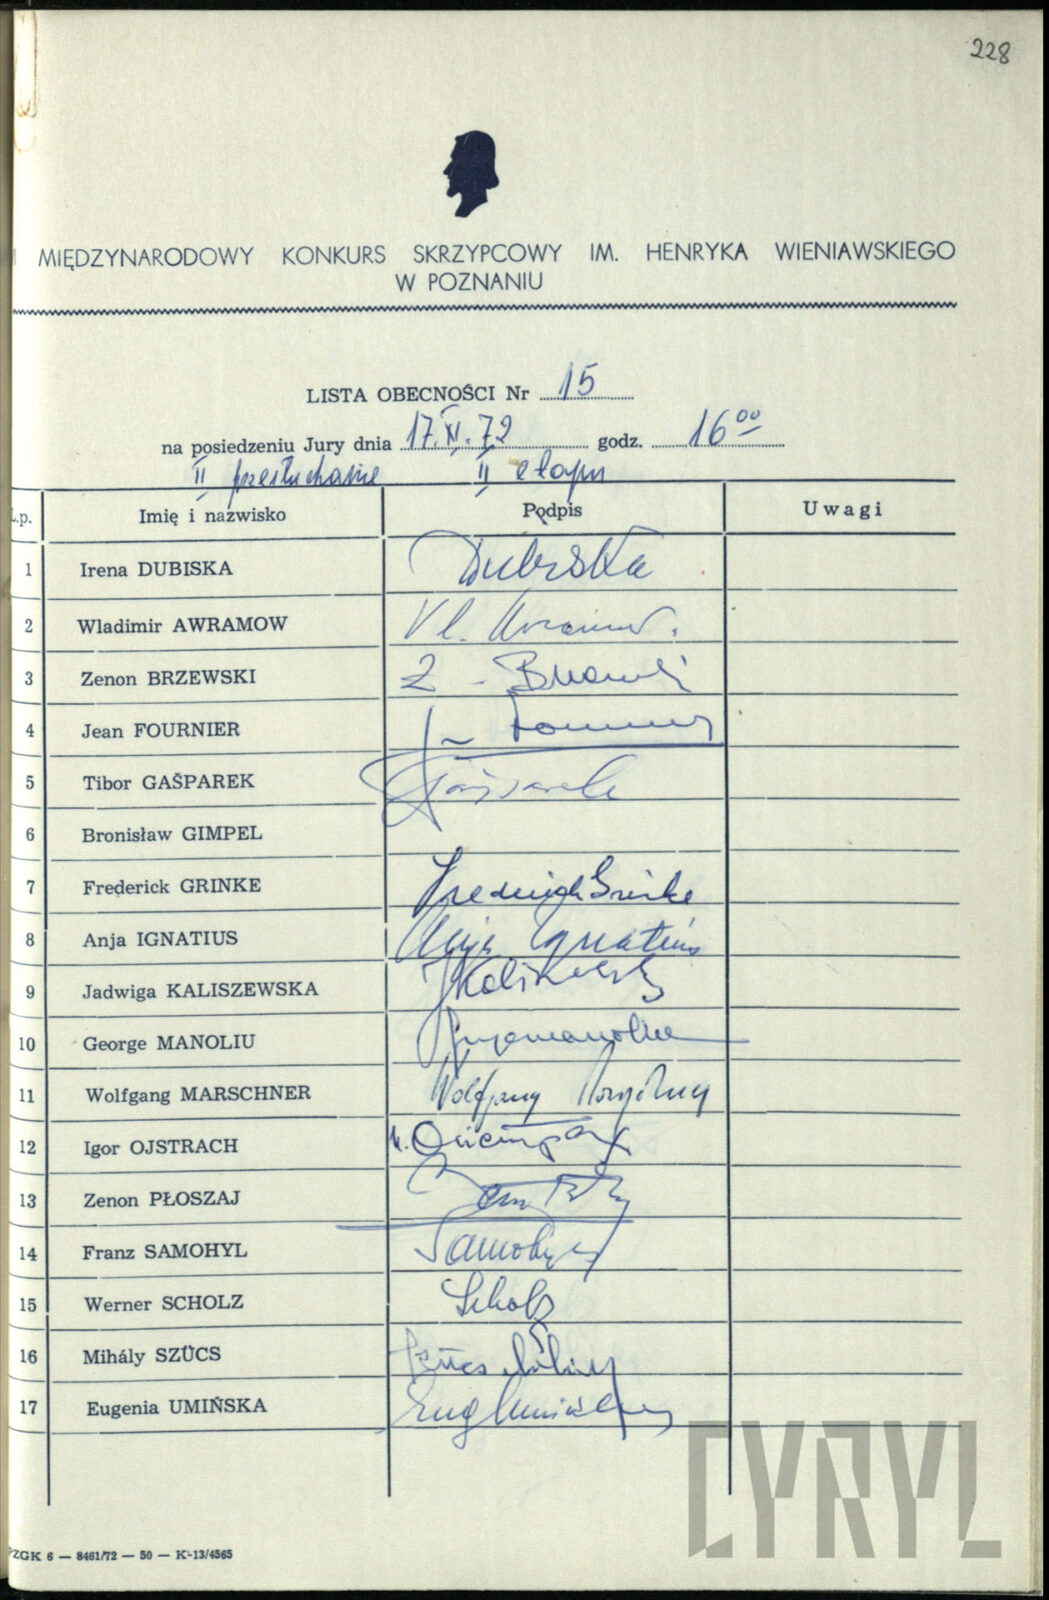 228
MIĘDZYNARODOWY KONKURS SKRZYPCOWY IM. HENRYKA WIENIAWSKIEGO
W POZNANIU
LISTA OBECNOŚCI Nr 15
na posiedzeniu Jury dnia 17.XI.72 godz. 16⁰⁰
II przesłuchanie II etapu
L.p. Imię i nazwisko Podpis Uwagi
1 Irena DUBISKA Dubiska
2 Wladimir AWRAMOW Vl.
3 Zenon BRZEWSKI Z.
4 Jean FOURNIER
5 Tibor GAŠPAREK Gašparek
6 Bronisław GIMPEL
7 Frederick GRINKE Frederick Grinke
8 Anja IGNATIUS Anja Ignatius
9 Jadwiga KALISZEWSKA JKaliszewska
10 George MANOLIU
11 Wolfgang MARSCHNER Wolfgang Marschner
12 Igor OJSTRACH
13 Zenon PŁOSZAJ
14 Franz SAMOHYL Samohyl
15 Werner SCHOLZ Scholz
16 Mihály SZÜCS Szücs Mihály
17 Eugenia UMIŃSKA Eug Umińska
PZGK 6 — 8461/72 — 50 — K-13/4565
CYRYL